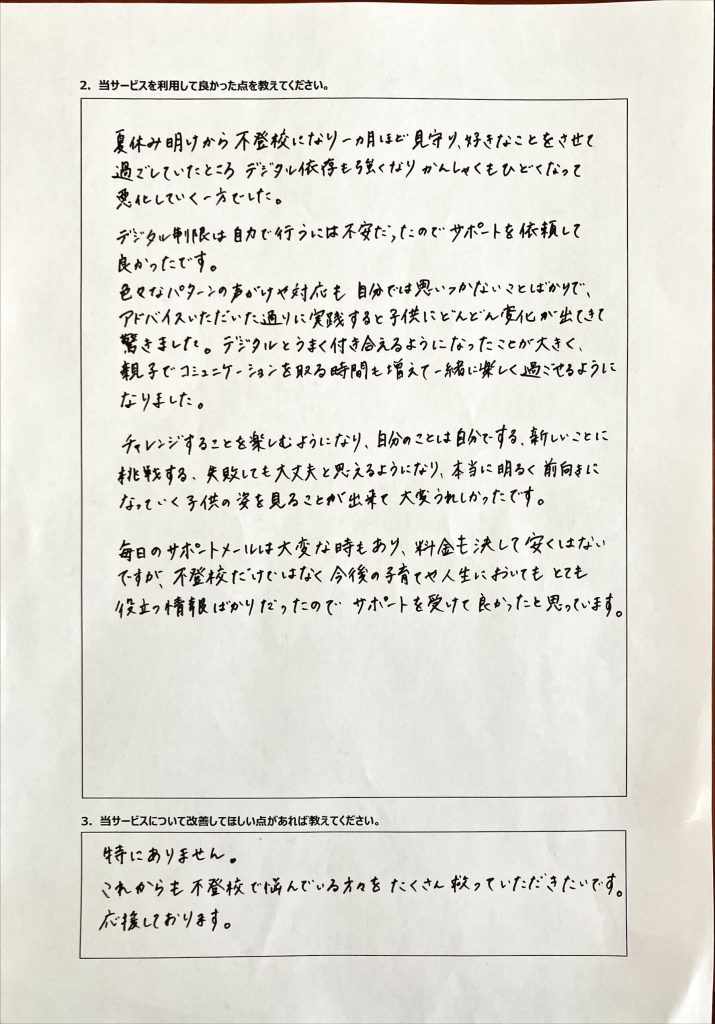 2. 当サービスを利用して良かった点を教えてください。
夏休み明けから不登校になり一カ月ほど見守り、好きなことをさせて
過ごしていたところ デジタル依存も強くなり かんしゃくもひどくなって
悪化していく一方でした。
デジタル制限は自力で行うには不安だったのでサポートを依頼して
良かったです。
色々なパターンの声がけや対応も 自分では思いつかないことばかりで、
アドバイスいただいた通りに実践すると子供にどんどん変化が出てきて
驚きました。デジタルとうまく付き合えるようになったことが大きく、
親子でコミュニケーションを取る時間も増えて一緒に楽しく過ごせるように
なりました。
チャレンジすることを楽しむようになり、自分のことは自分でする、新しいことに
挑戦する、失敗しても大丈夫と思えるようになり、本当に明るく前向きに
なっていく子供の姿を見ることが出来て 大変うれしかったです。
毎日のサポートメールは大変な時もあり、料金も決して安くはない
ですが、不登校だけではなく今後の子育てや人生においても とても
役立つ情報ばかりだったので サポートを受けて良かったと思っています。
3. 当サービスについて改善してほしい点があれば教えてください。
特にありません。
これからも不登校で悩んでいる方々を たくさん救っていただきたいです。
応援しております。